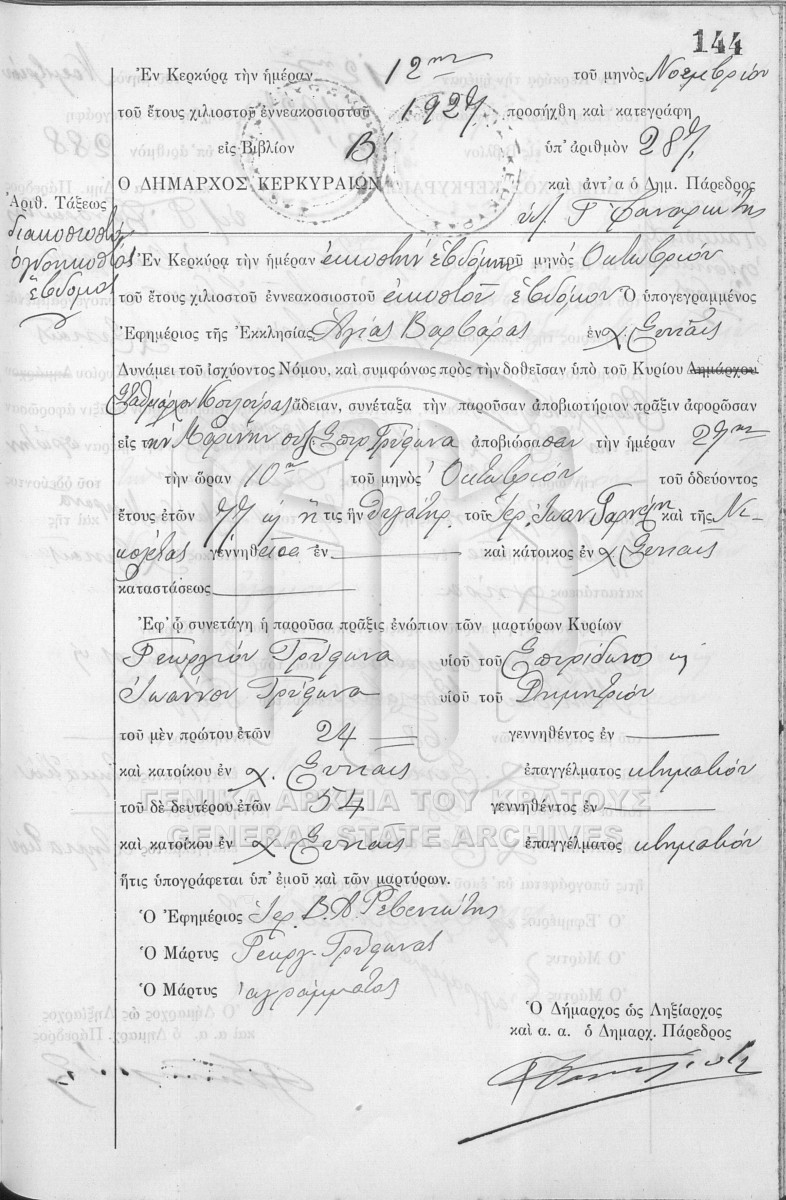 144
Ἐν Κερκύρᾳ τὴν ἡμέραν 12ην τοῦ μηνὸς Νοεμβρίου
τοῦ ἔτους χιλιοστοῦ ἐννεακοσιοστοῦ 1927 προσήχθη καὶ κατεγράφη
εἰς Βιβλίον Β' ὑπ' ἀριθμὸν 287
Ο ΔΗΜΑΡΧΟΣ ΚΕΡΚΥΡΑΙΩΝ καὶ ἀντ' α ὁ Δημ. Πάρεδρος
Ἀριθ. Τάξεως
διακοσιοστὸς
ὀγδοηκοστὸς
ἕβδομος
Ἐν Κερκύρᾳ τὴν ἡμέραν εἰκοστὴν ἑβδόμην τοῦ μηνὸς Ὀκτωβρίου
τοῦ ἔτους χιλιοστοῦ ἐννεακοσιοστοῦ εἰκοστοῦ ἑβδόμου Ὁ ὑπογεγραμμένος
Ἐφημέριος τῆς Ἐκκλησίας Ἁγίας Βαρβάρας ἐν χ.
Δυνάμει τοῦ ἰσχύοντος Νόμου, καὶ συμφώνως πρὸς τὴν δοθεῖσαν ὑπὸ τοῦ Κυρίου Δημάρχου
ἄδειαν, συνέταξα τὴν παροῦσαν ἀποβιωτήριον πρᾶξιν ἀφορῶσαν
εἰς τὴν συζ. Σπυρ Τρύφωνα ἀποβιώσασαν τὴν ἡμέραν 27ην
τὴν ὥραν 10ην τοῦ μηνὸς Ὀκτωβρίου τοῦ ὁδεύοντος
ἔτους ἐτῶν 77 ἥτις ἦν θυγάτηρ τοῦ Ἱερ. Ἰωαν καὶ τῆς Νι-
κολέτας γεννηθεῖσα ἐν καὶ κάτοικος ἐν χ
καταστάσεως
Ἐφ' ᾧ συνετάγη ἡ παροῦσα πρᾶξις ἐνώπιον τῶν μαρτύρων Κυρίων
Γεωργίου Τρύφωνα υἱοῦ τοῦ Σπυρίδωνος
Ἰωάννου Τρύφωνα υἱοῦ τοῦ Δημητρίου
τοῦ μὲν πρώτου ἐτῶν 24 γεννηθέντος ἐν
καὶ κατοίκου ἐν χ. ἐπαγγέλματος κτηματίου
τοῦ δὲ δευτέρου ἐτῶν 54 γεννηθέντος ἐν
ΓΕΝΙΚΑ ΑΡΧΕΙΑ ΤΟΥ ΚΡΑΤΟΥΣ
GENERAL STATE ARCHIVES
καὶ κατοίκου ἐν χ ἐπαγγέλματος κτηματίου
ἥτις ὑπογράφεται ὑπ' ἐμοῦ καὶ τῶν μαρτύρων.
Ὁ Ἐφημέριος Ἱερ. Β. Α
Ὁ Μάρτυς Γεωργ. Τρύφωνας
Ὁ Μάρτυς ἀγράμματος
Ὁ Δήμαρχος ὡς Ληξίαρχος
καὶ α. α. ὁ Δημαρχ. Πάρεδρος